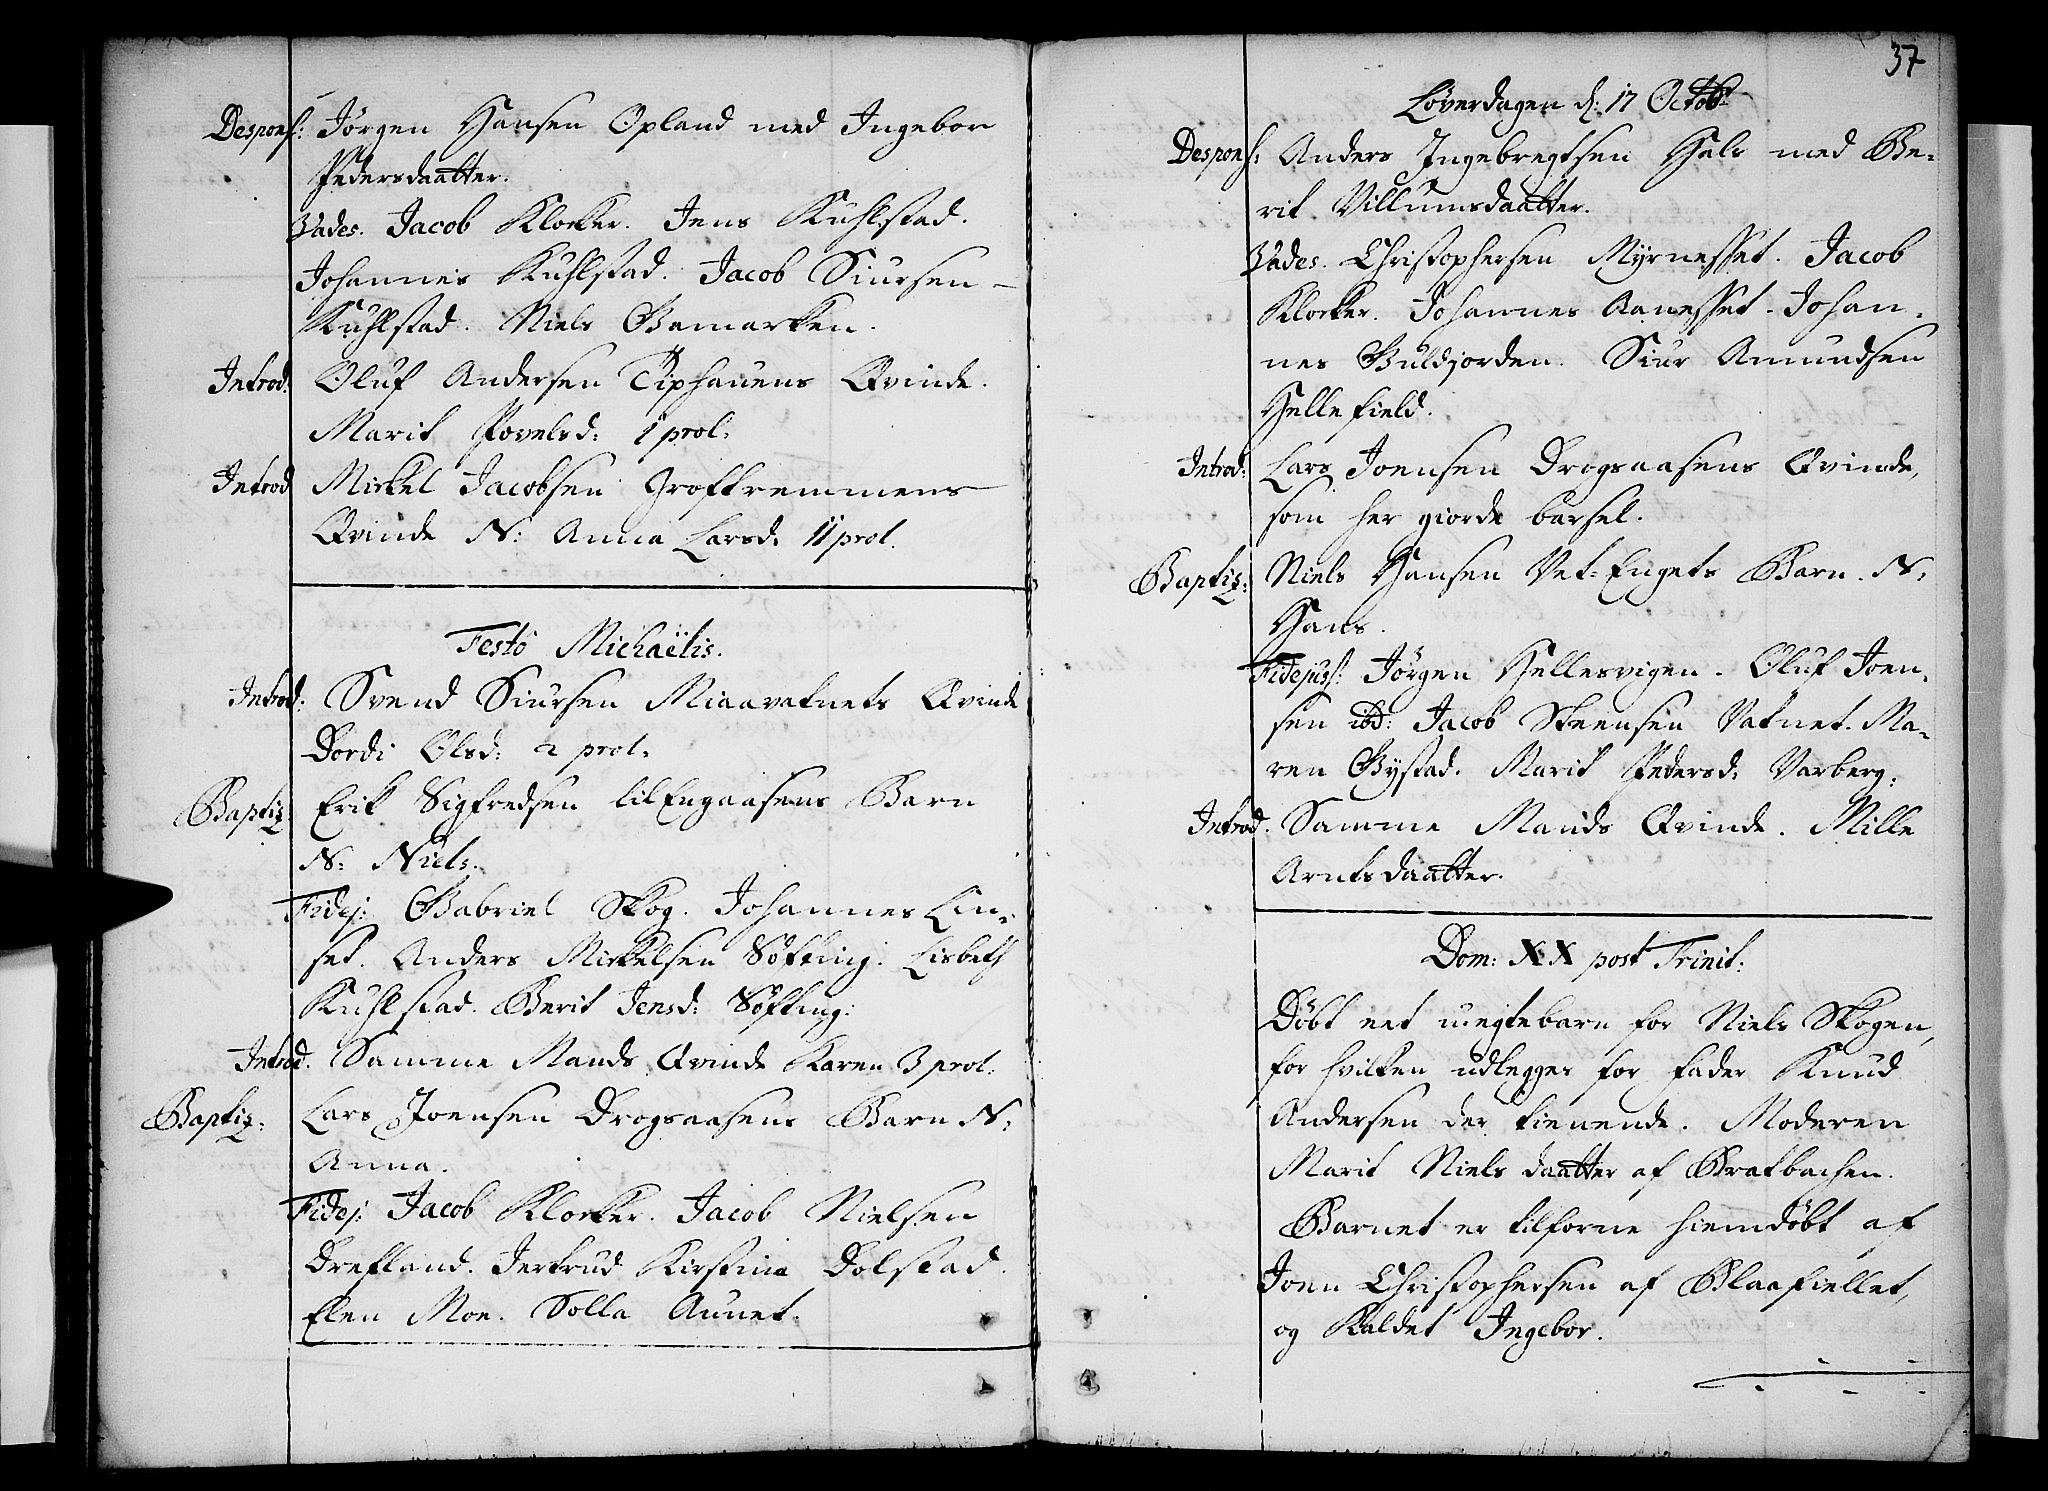 Despons: Jörgen Hansen Opland med Ingebor
Pedersdaatter.
Vades. Jacob Klocker. Jens Kuhlstad.
Johannes Kuhlstad. Jacob Siursen
Kuhlstad. Niels Bamarken.
Introd: Oluf Andersen Tiphauens Qvinde.
Marit Povelsd: 1 prol.
Introd Mickel Jacobsen Groftremmens
Qvinde N: Anna Larsd. 11 prol.
Festo Michaëlis.
Introd: Svend Siursen Miaavatnets Qvinde
Dordi Olsd: 2 prol.
Baptiz: Erik Sigfredsen lilEngaasens Barn
N: Niels.
Fidej: Gabriel Skog. Johannes Lin-
set. Anders Mickelsen Söfting. Lisbeth
Kuhlstad. Berit Jensd: Söfting:
Introd. Samme Mands Qvinde Karen 3 prol.
Baptiz: Lars Joensen Drogsaasens Barn N:
Anna.
Fidej: Jacob Klocker. Jacob Nielsen
Drefland. Jertrud Kirstina Dolstad.
Elen Moe. Solla Aunet.
37
Löverdagen d: 17 Octobr
Despons: Anders Ingebregtsen Hals med Be-
rit Villumsdaatter.
Vades. Christophersen Myrnesset. Jacob
Klocker. Johannes Aanesset. Johan-
nes Buldjorden. Siur Amundsen
Hellefield.
Introd: Lars Joensen Drogsaasens Qvinde,
som her giorde barsel.
Baptiz: Niels Hansen Vet-Engets Barn. N:
Hans.
Fidejuss: Jörgen Hellesvigen. Oluf Joen-
sen ibd: Jacob Steensen Vatnet. Ma-
ren Bystad. Marit Pedersd: Varberg:
Introd. Samme Mands Qvinde. Mille
Arntsdaatter.
Dom: XX post Trinit:
Döbt eet uegtebarn for Niels Skogen,
for hvilken udlegges for fader Knud
Andersen der tienende. Moderen
Marit Nielsdaatter af Bratbachen.
Barnet er tilforne hiemdöbt af
Joen Christophersen af Blaafiellet,
og Kaldet Ingebor.